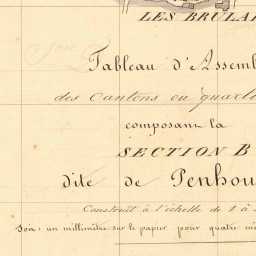 LES BRULA
Tableau d'Assemb
des Cantons ou quarti
composant la
SECTION B
dite de Penhou
Construit à l'échelle de 1 à
Soit un millimètre sur le papier pour quatre mè